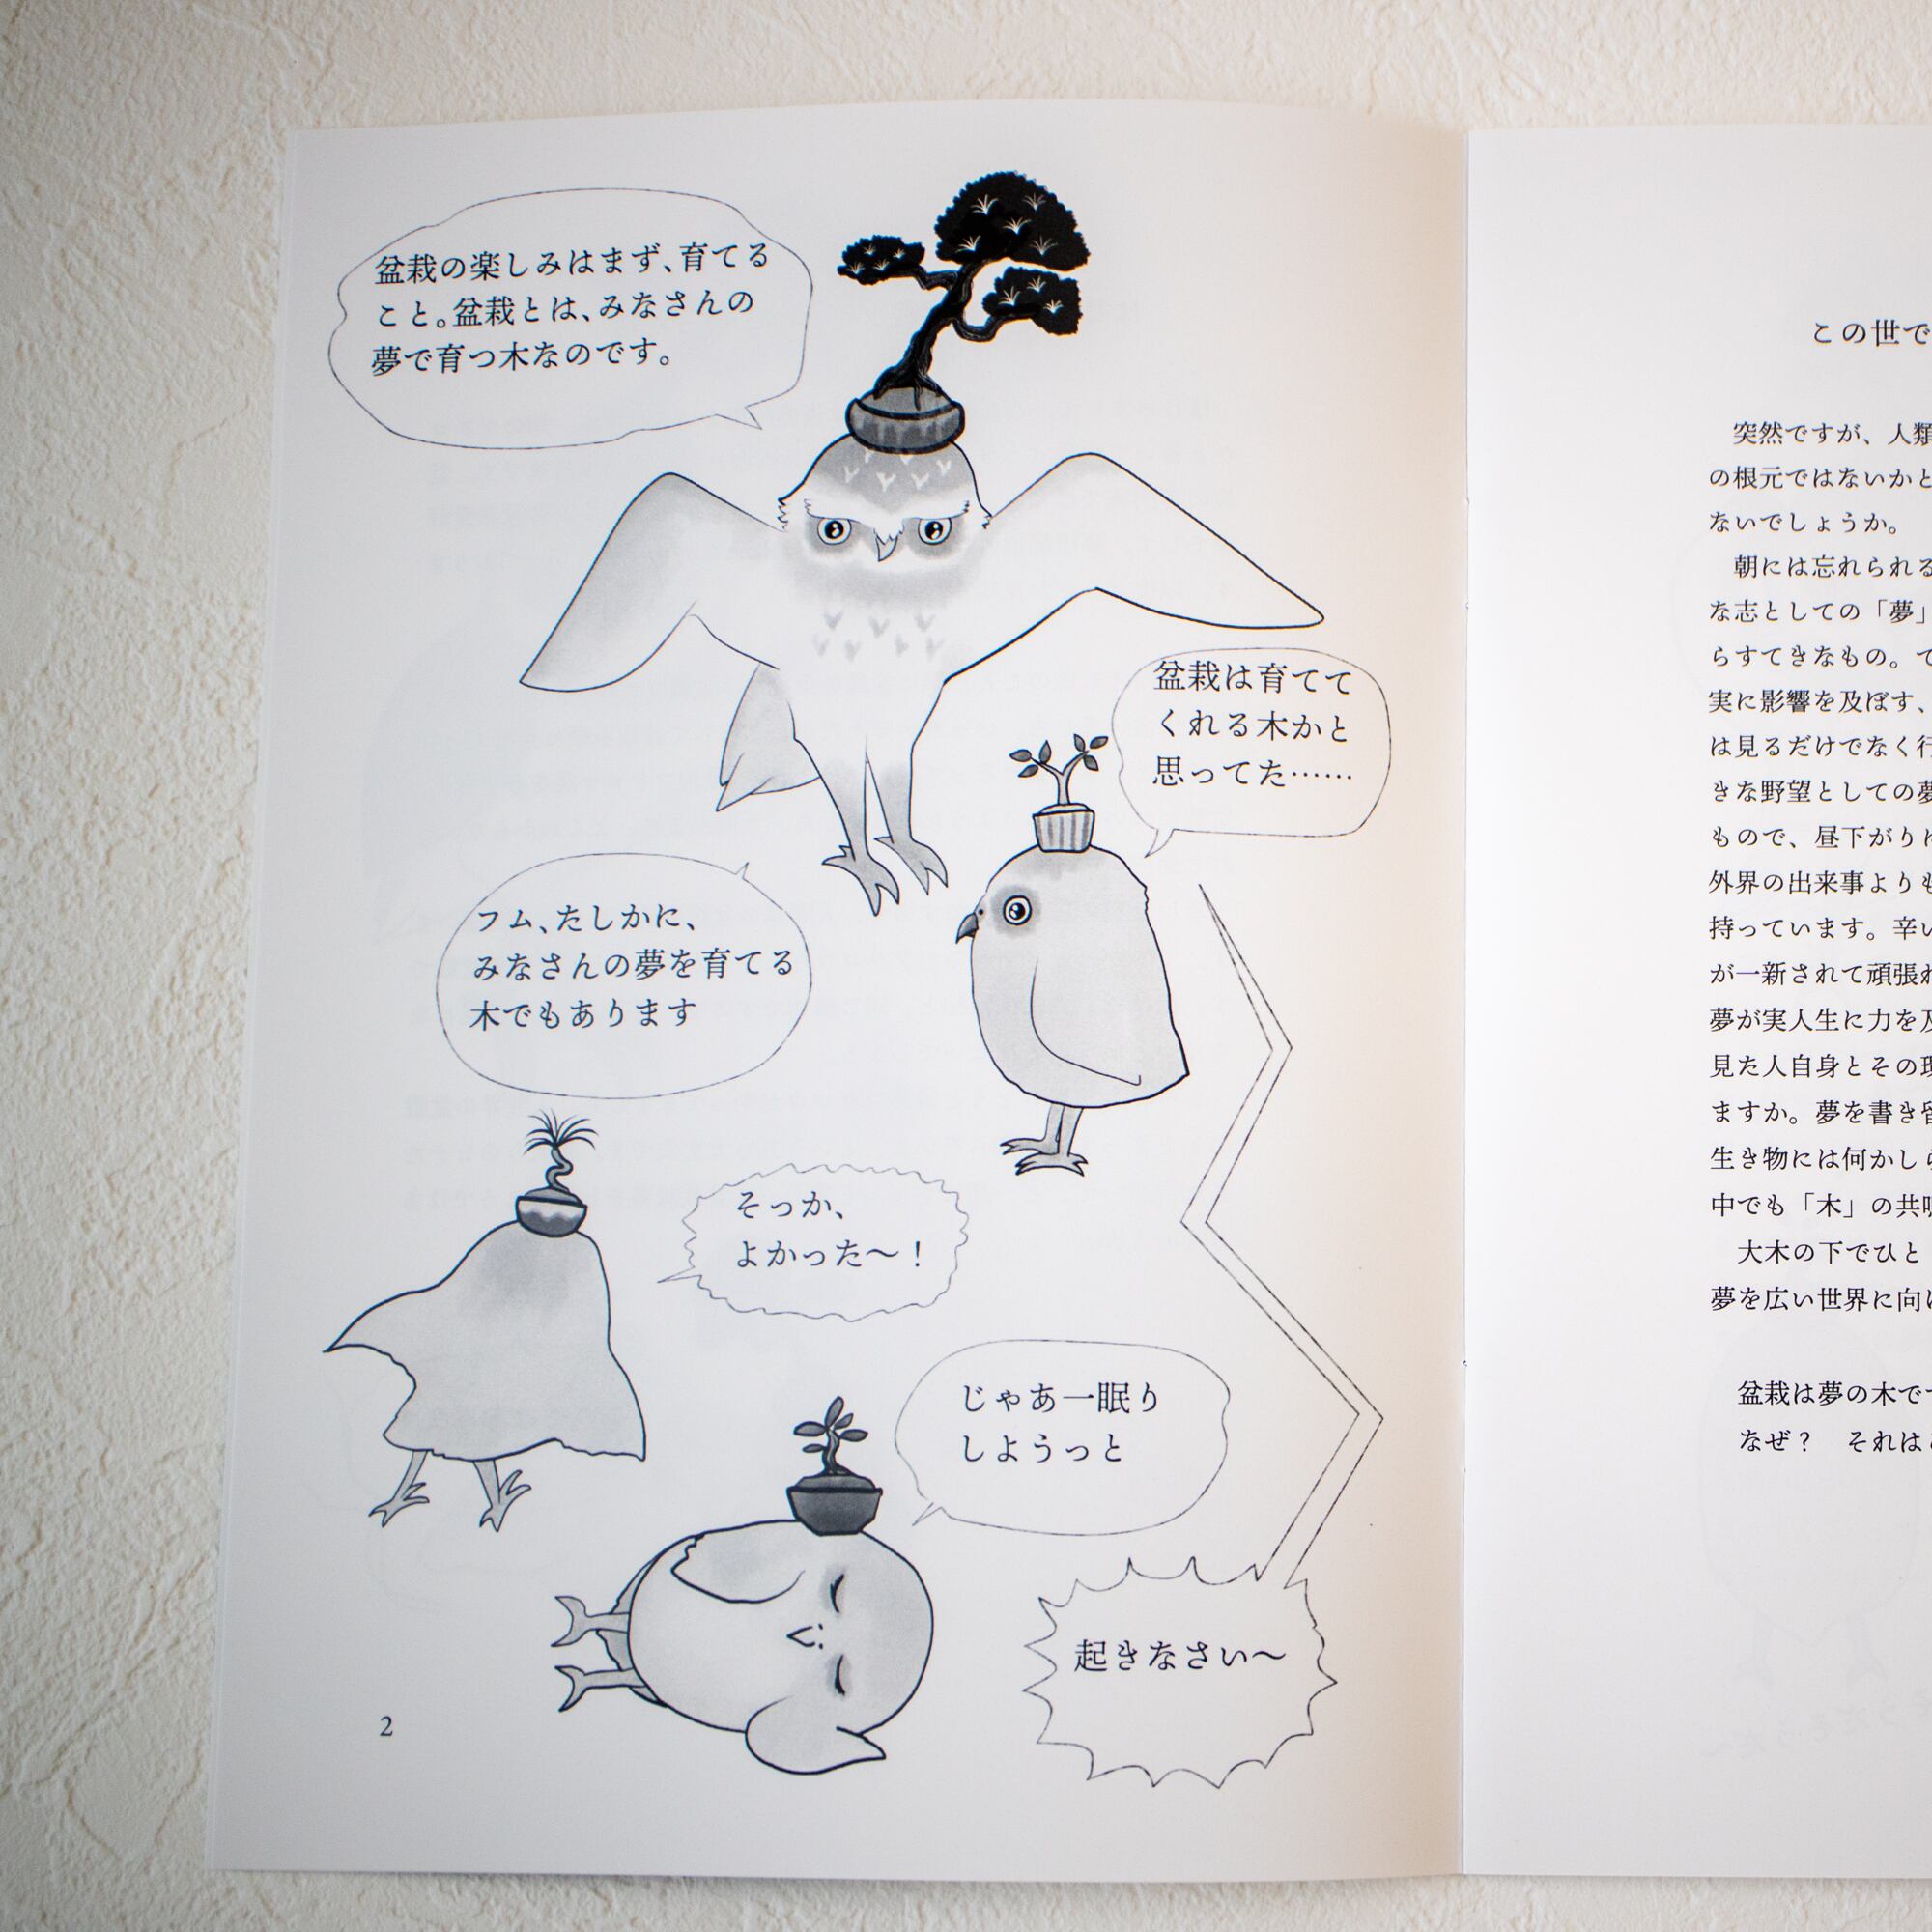 盆栽の楽しみはまず、育てる
こと。盆栽とは、みなさんの
夢で育つ木なのです。
盆栽は育てて
くれる木かと
思ってた……
フム、たしかに、
みなさんの夢を育てる
木でもあります
そっか、
よかった〜！
じゃあ一眠り
しようっと
起きなさい〜
2
この世で
突然ですが、人類
の根元ではないかと
ないでしょうか。
朝には忘れられる
な志としての「夢」
らすてきなもの。で
実に影響を及ぼす、
は見るだけでなく行
きな野望としての夢
もので、昼下がりに
外界の出来事よりも
持っています。辛い
が一新されて頑張れ
夢が実人生に力を及
見た人自身とその現
ますか。夢を書き留
生き物には何かしら
中でも「木」の共鳴
大木の下でひと
夢を広い世界に向け
盆栽は夢の木です
なぜ？　それは